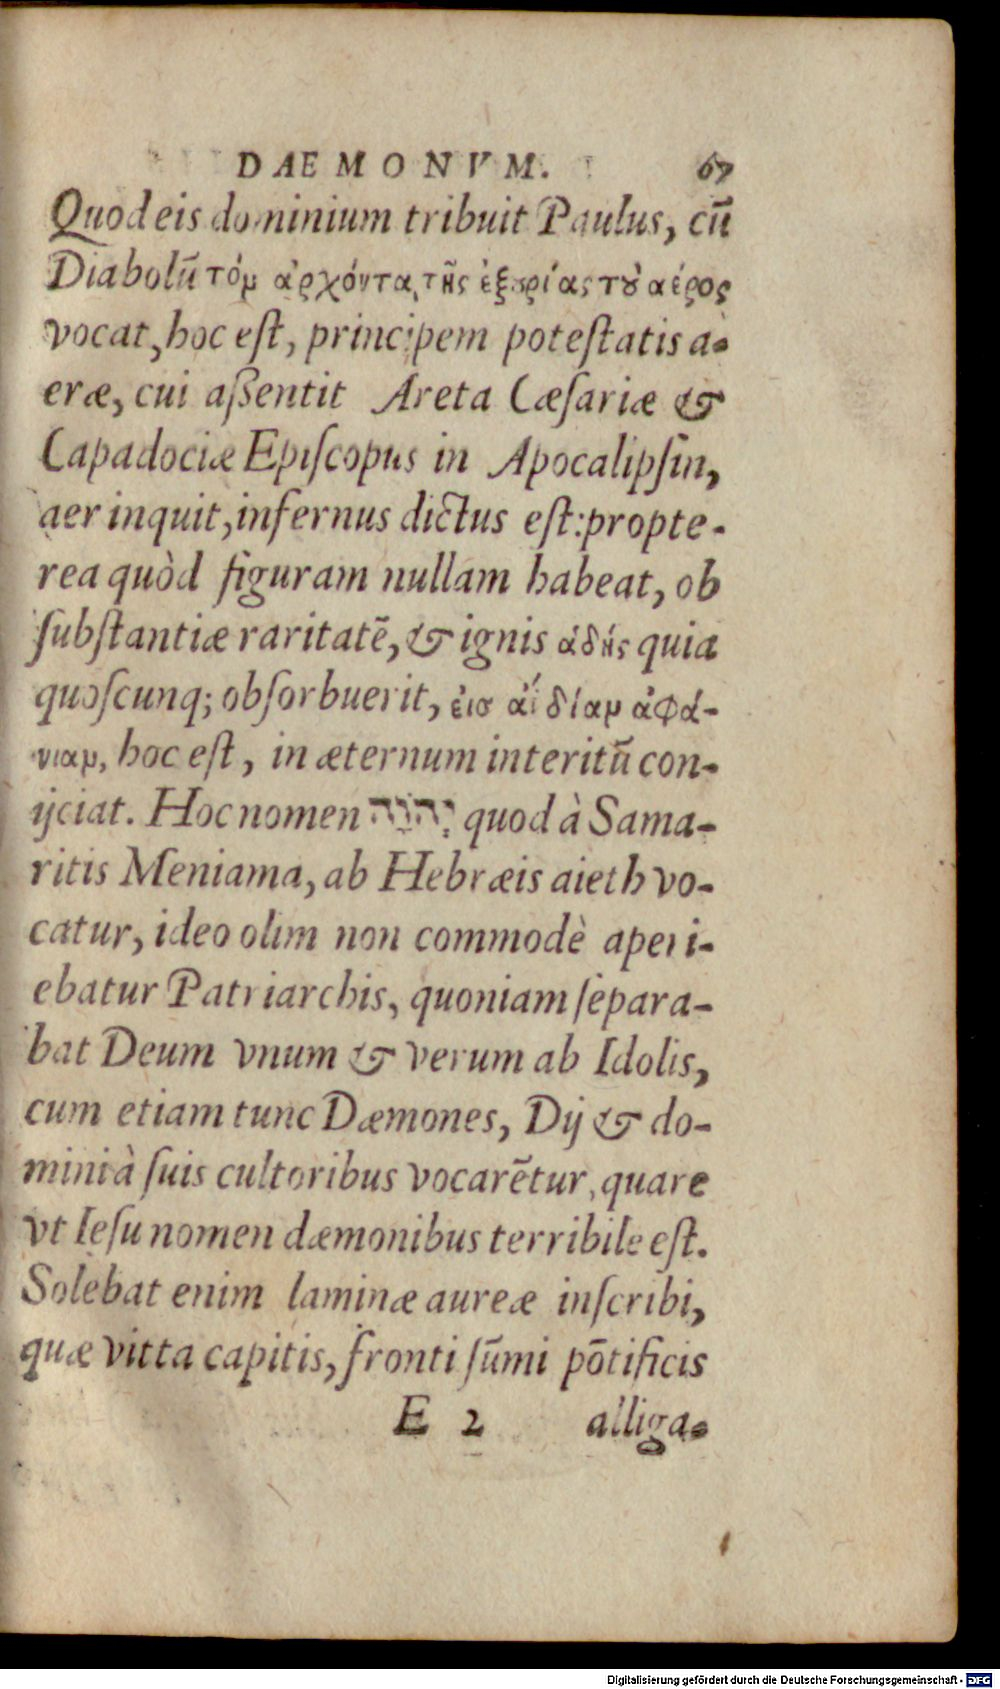 DAEMONVM. 67
Quod eis dominium tribuit Paulus, cū
Diabolū τόμ ἀρχόντα, τῆς ἐξȣρίας τȣ̃ ἀέρος
vocat, hoc eſt, principem poteſtatis a-
eræ, cui aßentit Areta Cæſariæ &
Capadociæ Epiſcopus in Apocalipſin,
aer inquit, infernus dictus eſt: propte-
rea quòd figuram nullam habeat, ob
ſubſtantiæ raritatē, & ignis ἀδής quia
quoſcunq; obſorbuerit, ἐισ ἀίδίαμ ἀφά-
νιαμ, hoc eſt, in æternum interitū con-
ijciat. Hoc nomen יְהוָה quod à Sama-
ritis Meniama, ab Hebræis aieth vo-
catur, ideo olim non commodè aperi-
ebatur Patriarchis, quoniam ſepara-
bat Deum vnum & verum ab Idolis,
cum etiam tunc Dæmones, Dij & do-
mini à ſuis cultoribus vocarētur, quare
vt Ieſu nomen dæmonibus terribile eſt.
Solebat enim laminæ aureæ inſcribi,
quæ vitta capitis, fronti ſūmi pōtificis
E 2 alliga-
Digitalisierung gefördert durch die Deutsche Forschungsgemeinschaft - DFG